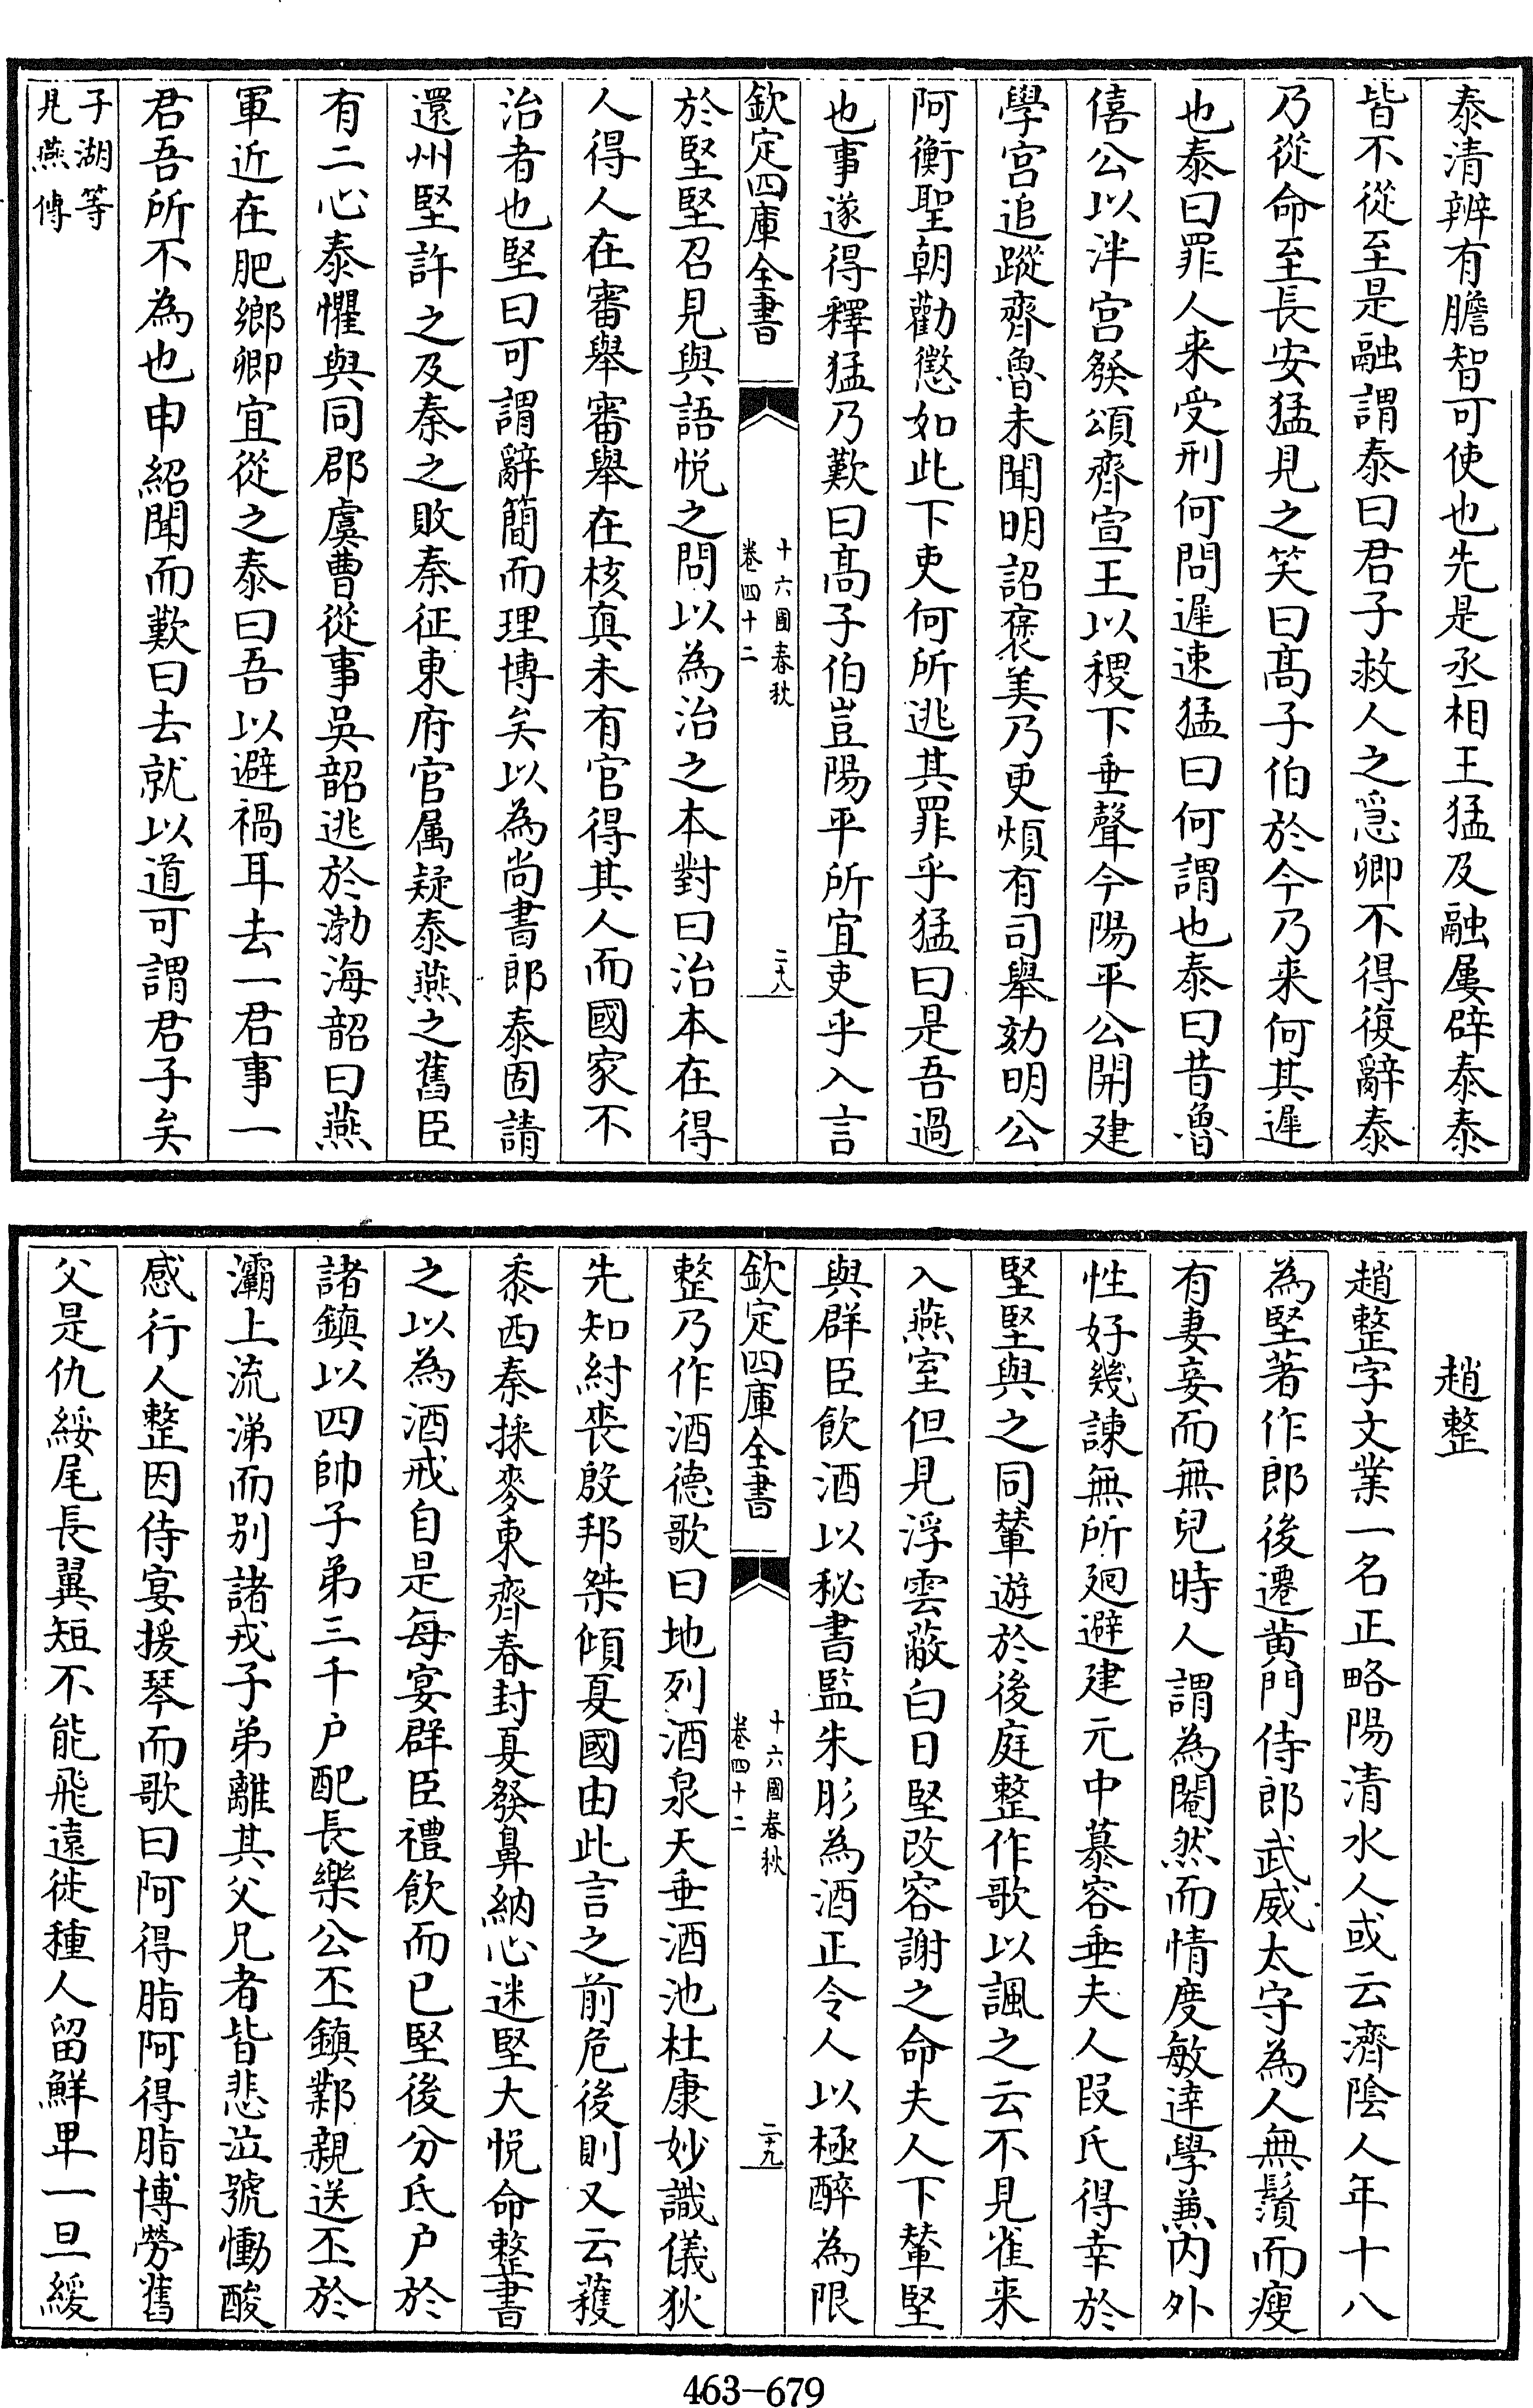 泰清辨有膽智可使也先是丞相王猛及融屢辟泰泰
皆不從至是融謂泰曰君子救人之急卿不得復辭泰
乃從命至長安猛見之笑曰髙子伯於今乃来何其遲
也泰曰罪人来受刑何問遲速猛曰何謂也泰曰昔魯
僖公以泮宫發頌齊宣王以稷下垂聲今陽平公開建
學宫追蹤齊魯未聞明詔褒美乃更煩有司舉劾明公
阿衡聖朝勸懲如此下吏何所逃其罪乎猛曰是吾過
也事遂得釋猛乃歎曰髙子伯豈陽平所宜吏乎入言
欽定四庫全書
十六國春秋
卷四十二
二十八
於堅堅召見與語悦之問以為治之本對曰治本在得
人得人在審舉審舉在核真未有官得其人而國家不
治者也堅曰可謂辭簡而理博矣以為尚書郎泰固請
還州堅許之及秦之敗秦征東府官属疑泰燕之舊臣
有二心泰懼與同郡虞曹從事吳韶逃於渤海韶曰燕
軍近在肥鄉卿宜從之泰曰吾以避禍耳去一君事一
君吾所不為也申紹聞而歎曰去就以道可謂君子矣
子湖等
見燕傳
趙整
趙整字文業一名正略陽清水人或云濟陰人年十八
為堅著作郎後遷黄門侍郎武威太守為人無鬚而瘦
有妻妾而無兒時人謂為閹然而情度敏達學兼内外
性好幾諫無所廻避建元中慕容垂夫人段氏得幸於
堅堅與之同輦遊於後庭整作歌以諷之云不見雀来
入燕室但見浮雲蔽白日堅改容謝之命夫人下輦堅
與群臣飲酒以秘書監朱肜為酒正令人以極醉為限
欽定四庫全書
十六國春秋
卷四十二
二十九
整乃作酒德歌曰地列酒泉天垂酒池杜康妙識儀狄
先知紂喪殷邦桀傾夏國由此言之前危後則又云穫
黍西秦採麥東齊春封夏發鼻納心迷堅大悦命整書
之以為酒戒自是每宴群臣禮飲而已堅後分氐户於
諸鎮以四帥子弟三千户配長樂公丕鎮鄴親送丕於
灞上流涕而别諸戎子弟離其父兄者皆悲泣號慟酸
感行人整因侍宴援琴而歌曰阿得脂阿得脂博勞舊
父是仇綏尾長翼短不能飛遠徙種人留鮮卑一旦緩
463-679